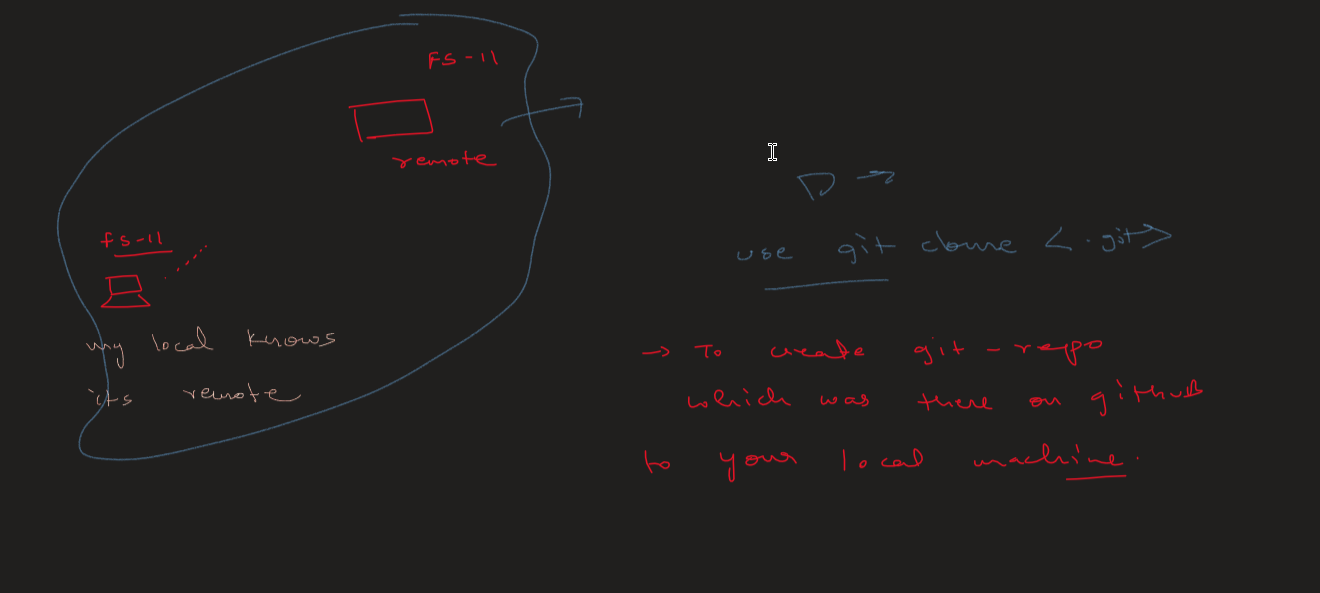 FS-11
remote
fs-11
my local knows
its remote
use git clone <.git>
→ To create git-repo
which was there on github
to your local machine.